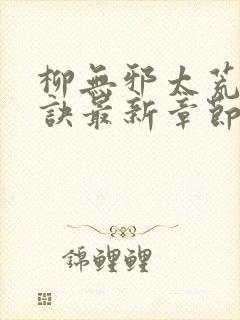 柳無邪太荒
訣最新章節
錦鯉鯉